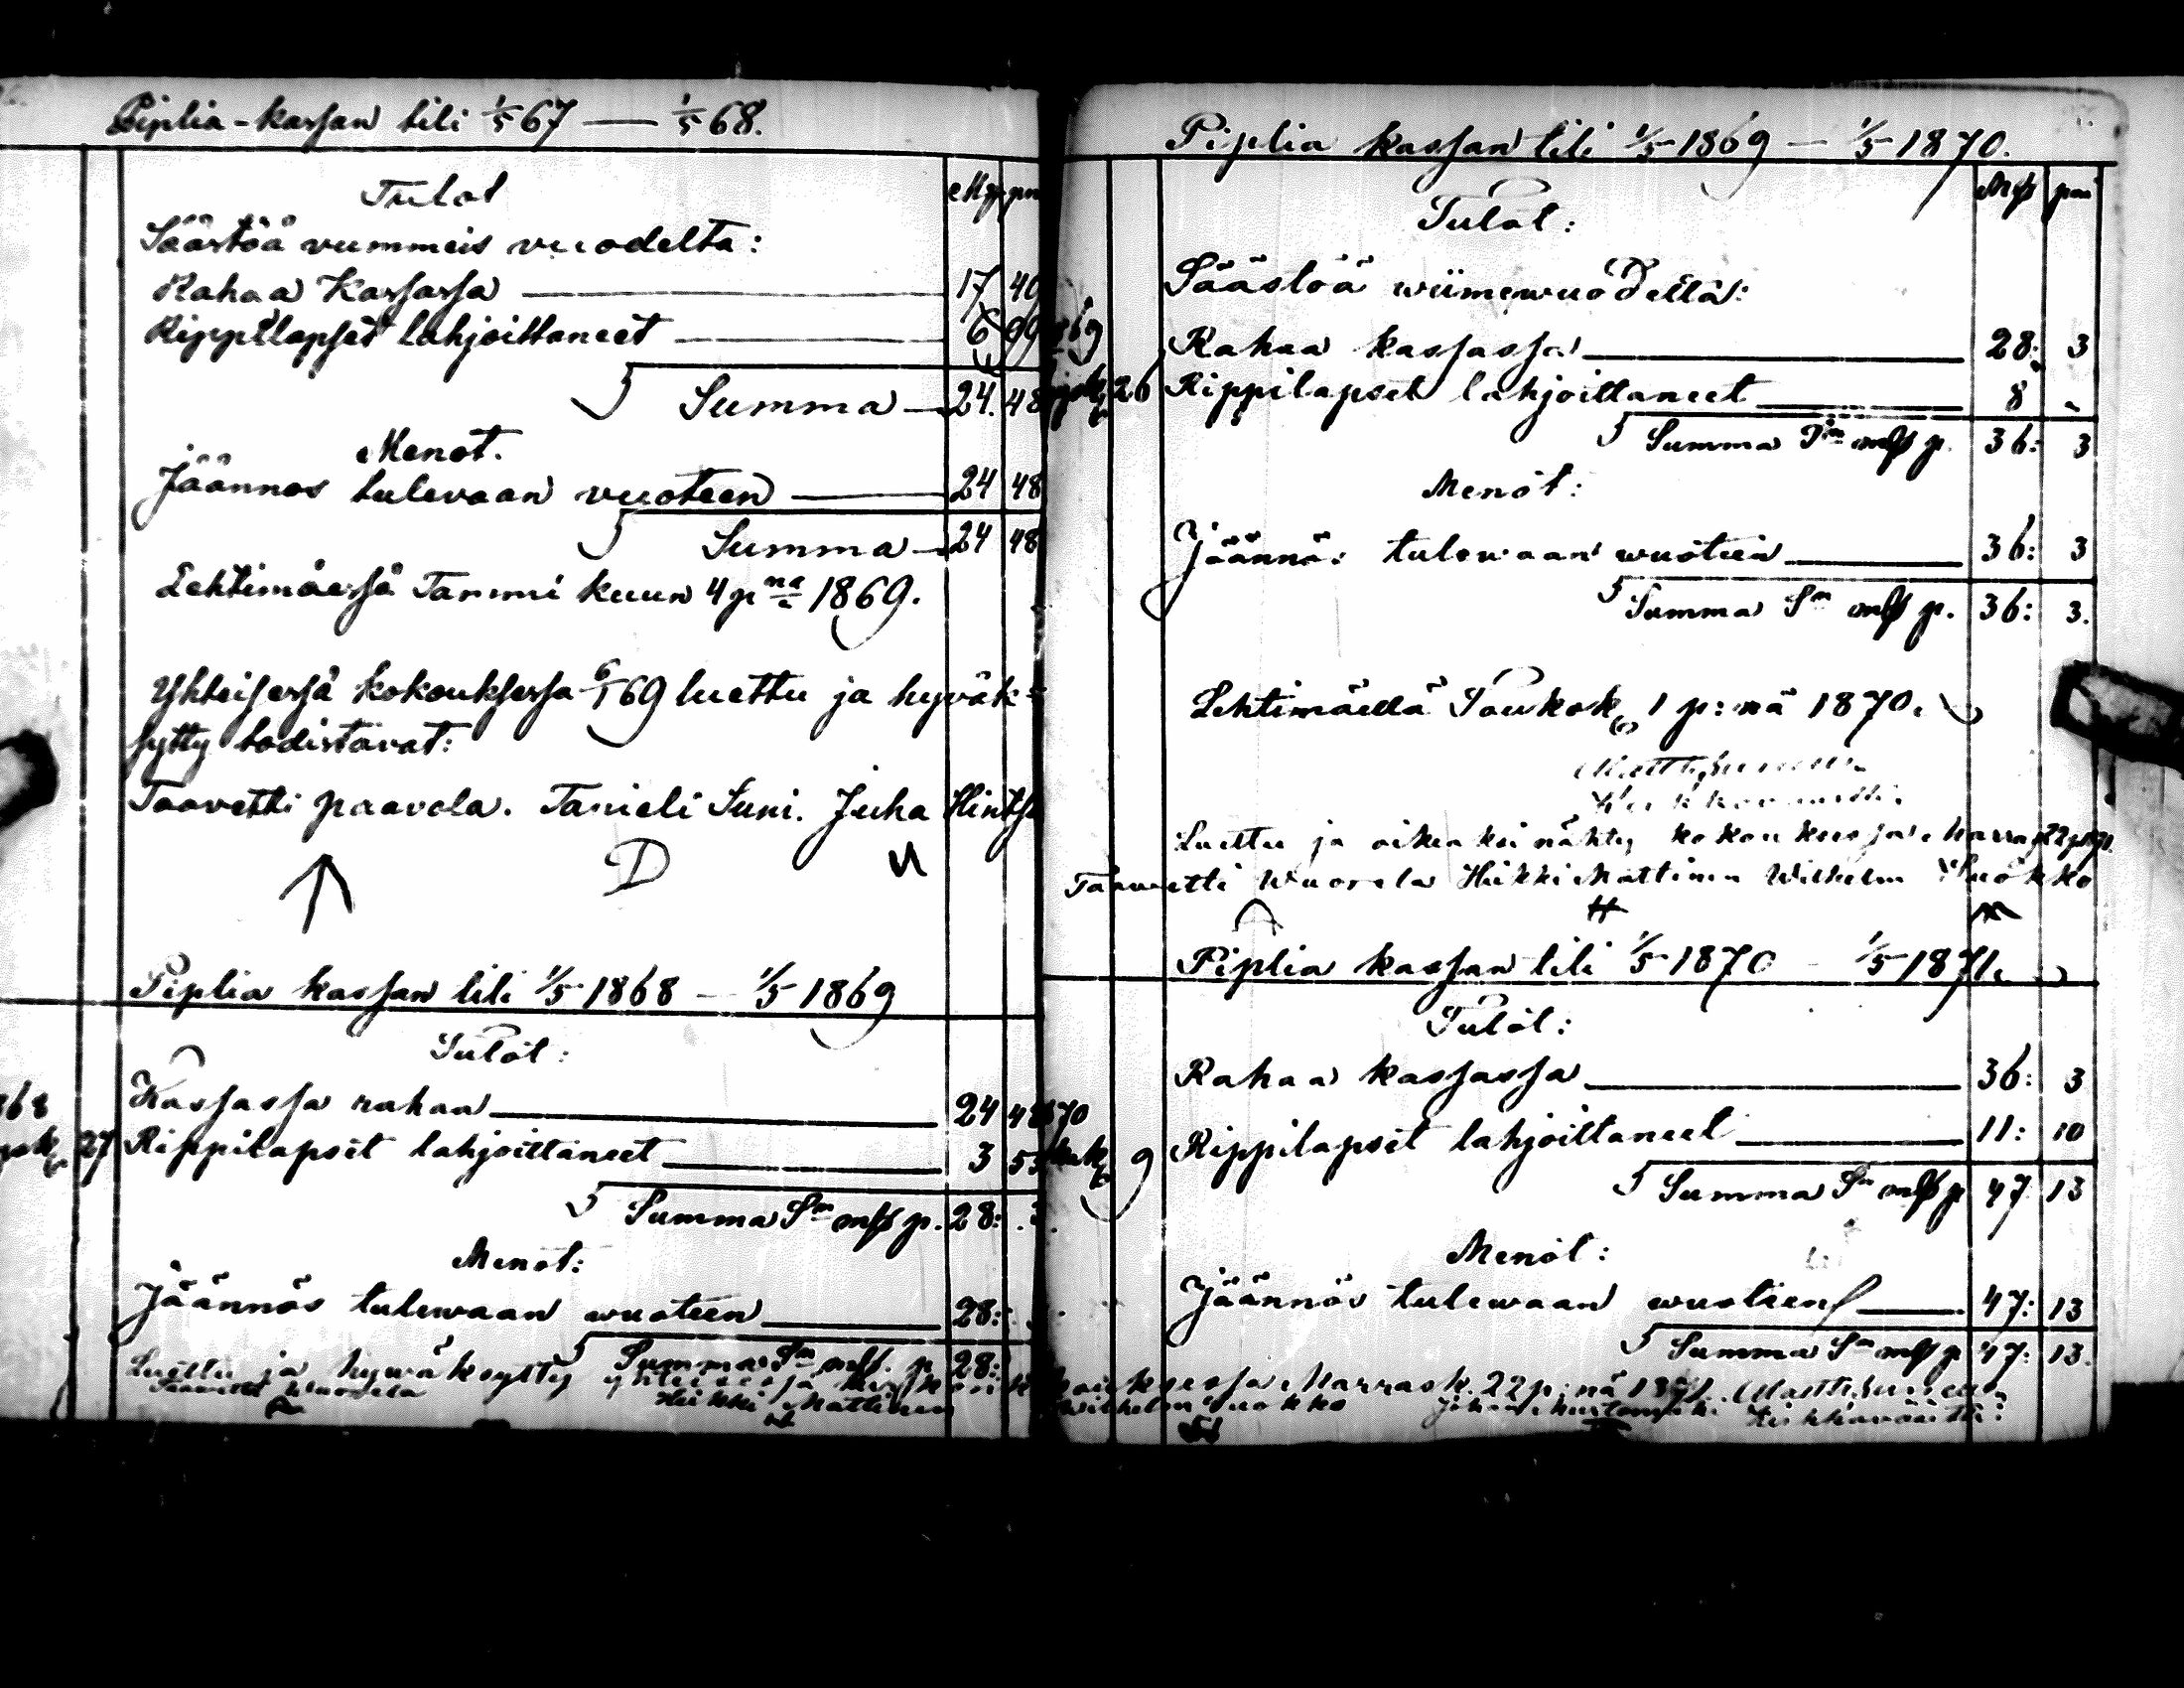 Piplia-kassan tili 1/5 67 — 1/5 68.
Tulot
Mrk pni
Säästöä viimmeis vuodelta:
Rahaa Kassassa 17 40
Rippilapset lahjoittaneet 6
Summa 24. 48
Menot.
Jäännos tulevaan vuoteen 24 48
Summa 24 48
Lehtimäessä Tammi kuun 4 pnä 1869.
Yhteisessä kokouksessa 6/1 69 luettu ja hyväk-
sytty todistavat:
Taavetti paavola. Tanieli Suni. Juha Hintsa
Piplia kassan tili 1/5 1868 — 1/5 1869
Tulot:
Kassassa rahaa 24 48
27 Rippilapset lahjoittaneet 3
Summa Sm mk p. 28:
Menot:
Jäännös tulewaan wuoteen 28:
Summa Sm mk. p 28:
Luettu ja hywäksytty
Heikki Mattinen
Piplia kassan tili 1/5 1869 — 1/5 1870.
Mk pni
Tulot:
Säästöä wiimewuodelta:
Rahaa kassassa 28: 3
26 Rippilapset lahjoittaneet 8 -
Summa Sm mk p. 36: 3
Menot:
Jäännös tulewaan wuoteen 36: 3
Summa Sm mk p. 36: 3.
Lehtimäellä Toukok. 1 p:nä 1870.
Luettu ja oikeaksi nähty kokouksessa Marrask 22 p
Taawetti Wuorela Heikki Mattinen Wilhelm Suokko
Piplia kassan tili 1/5 1870 — 1/5 1871.
Tulot:
Rahaa kassassa 36: 3
9 Rippilapset lahjoittaneet 11: 10
Summa Sm mk p 47 13
Menot:
Jäännös tulewaan wuoteen 47: 13
Summa Sm mk p 47: 13.
Marrask. 22 p:nä 1871.
Wilhelm Suokko